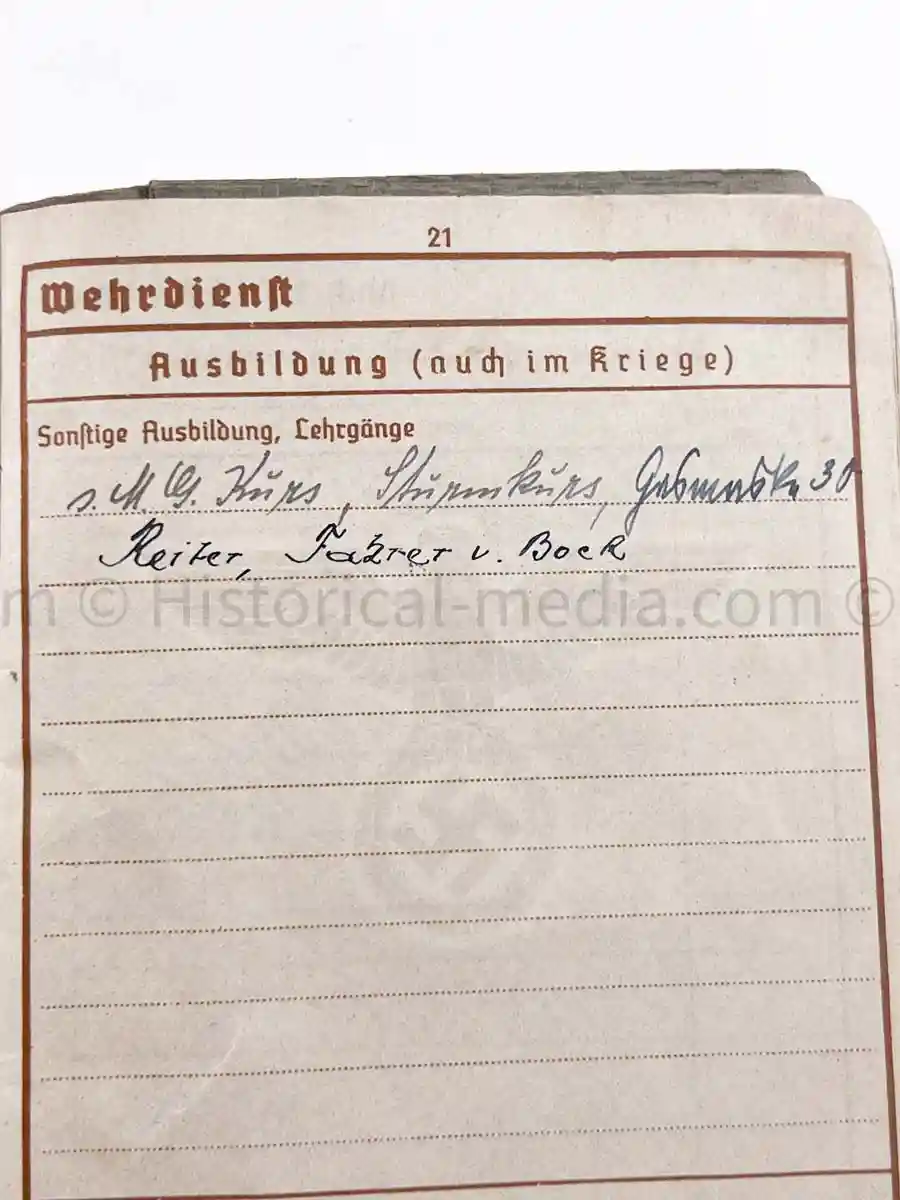 21
Wehrdienst
Ausbildung (auch im Kriege)
Sonstige Ausbildung, Lehrgänge
s. M. G. Kurs, Sturmkurs, Gasmaske 30
Reiter, Fahrer v. Bock
m © Historical-media.com ©